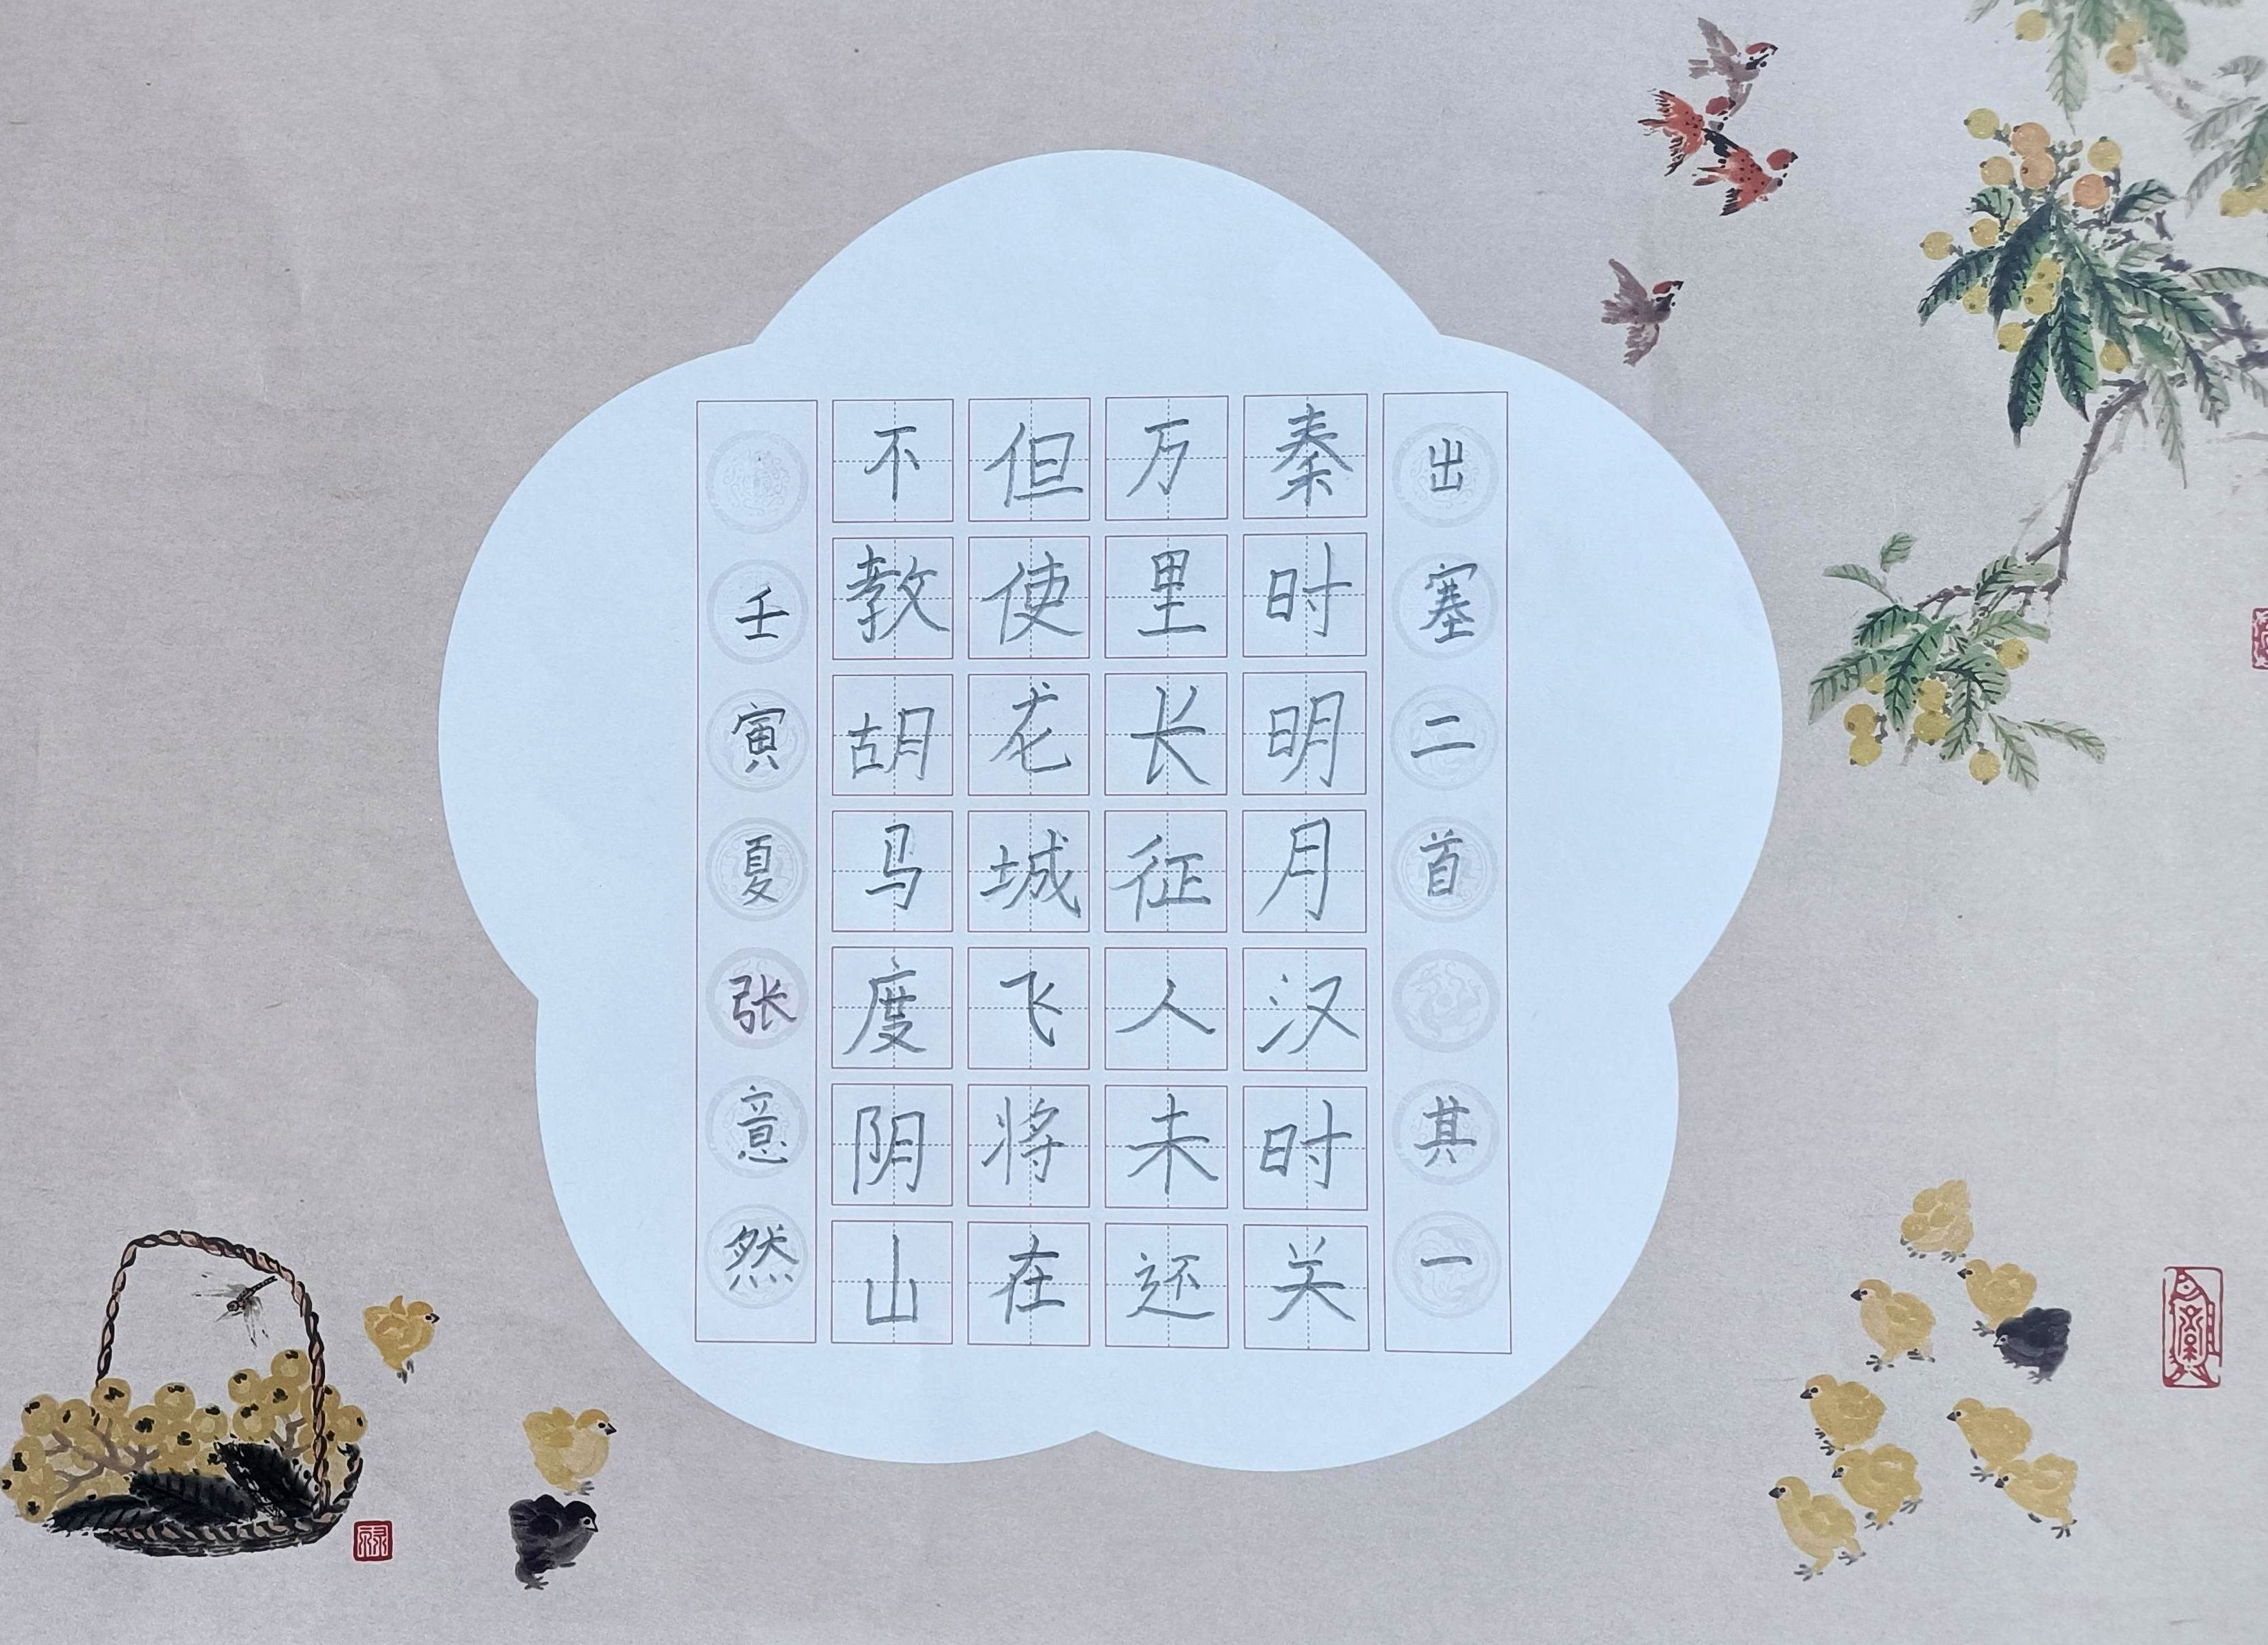 出塞二首 其一
秦时明月汉时关
万里长征人未还
但使龙城飞将在
不教胡马度阴山
壬寅夏张意然